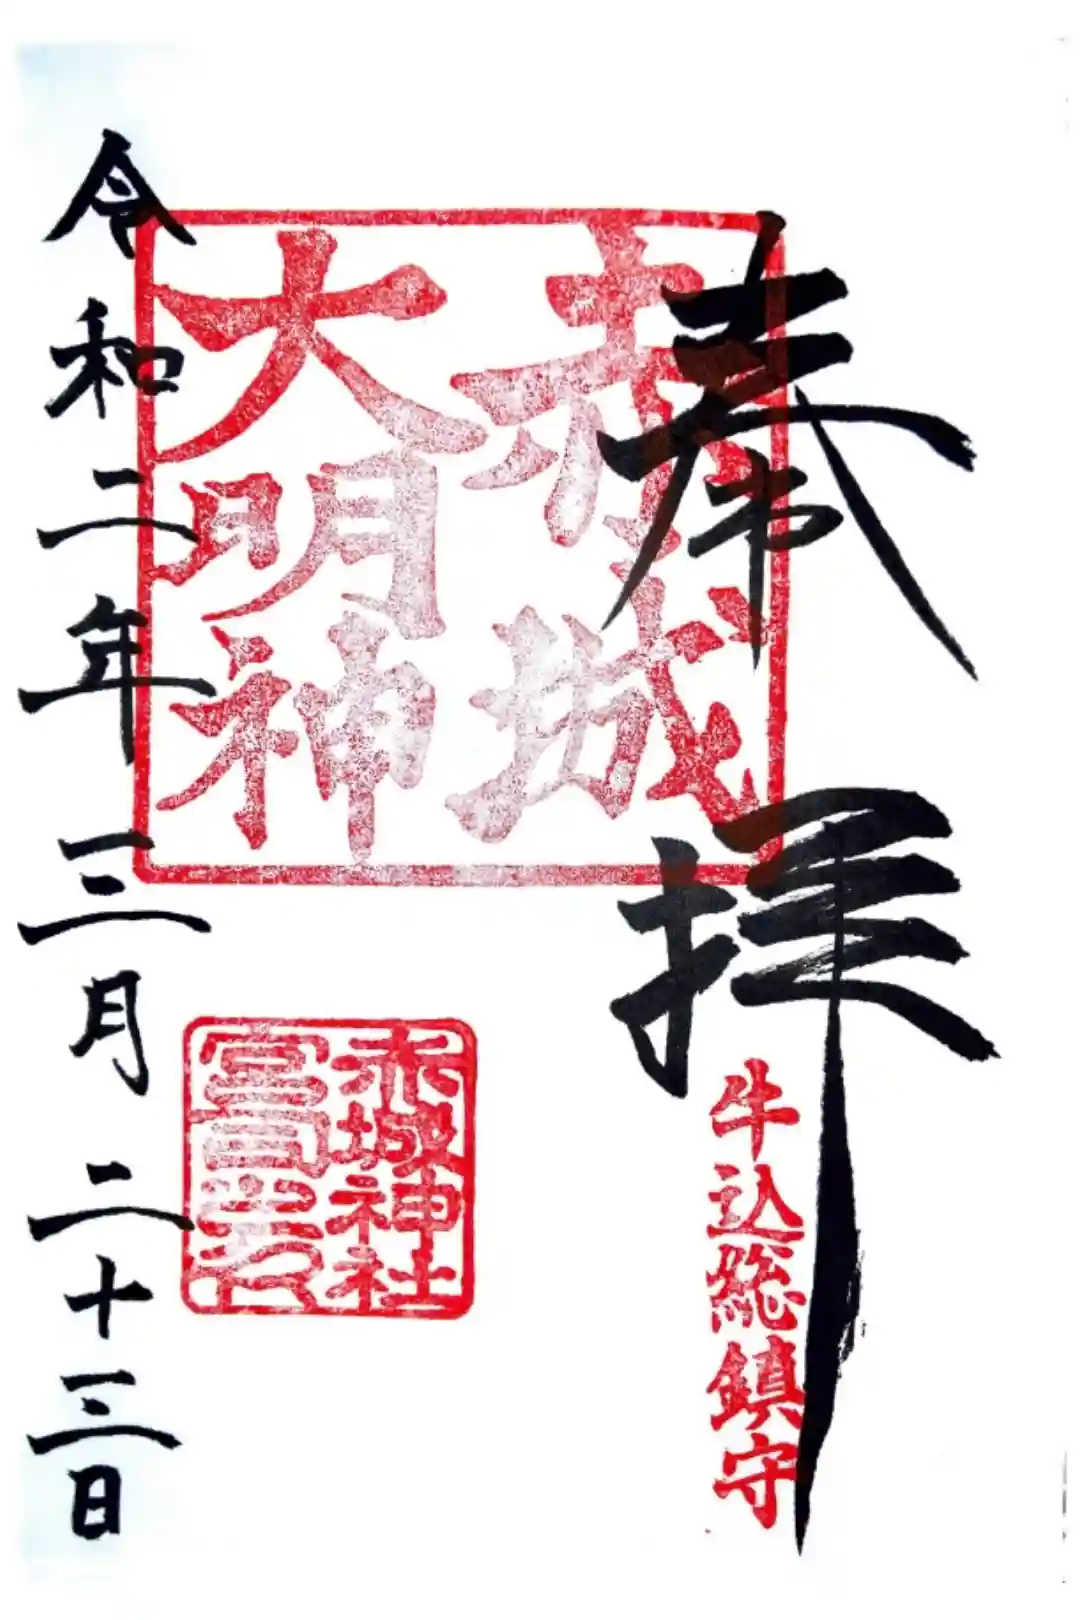 奉拝
牛込総鎮守
赤城
大明神
赤城神社
令和二年三月二十三日